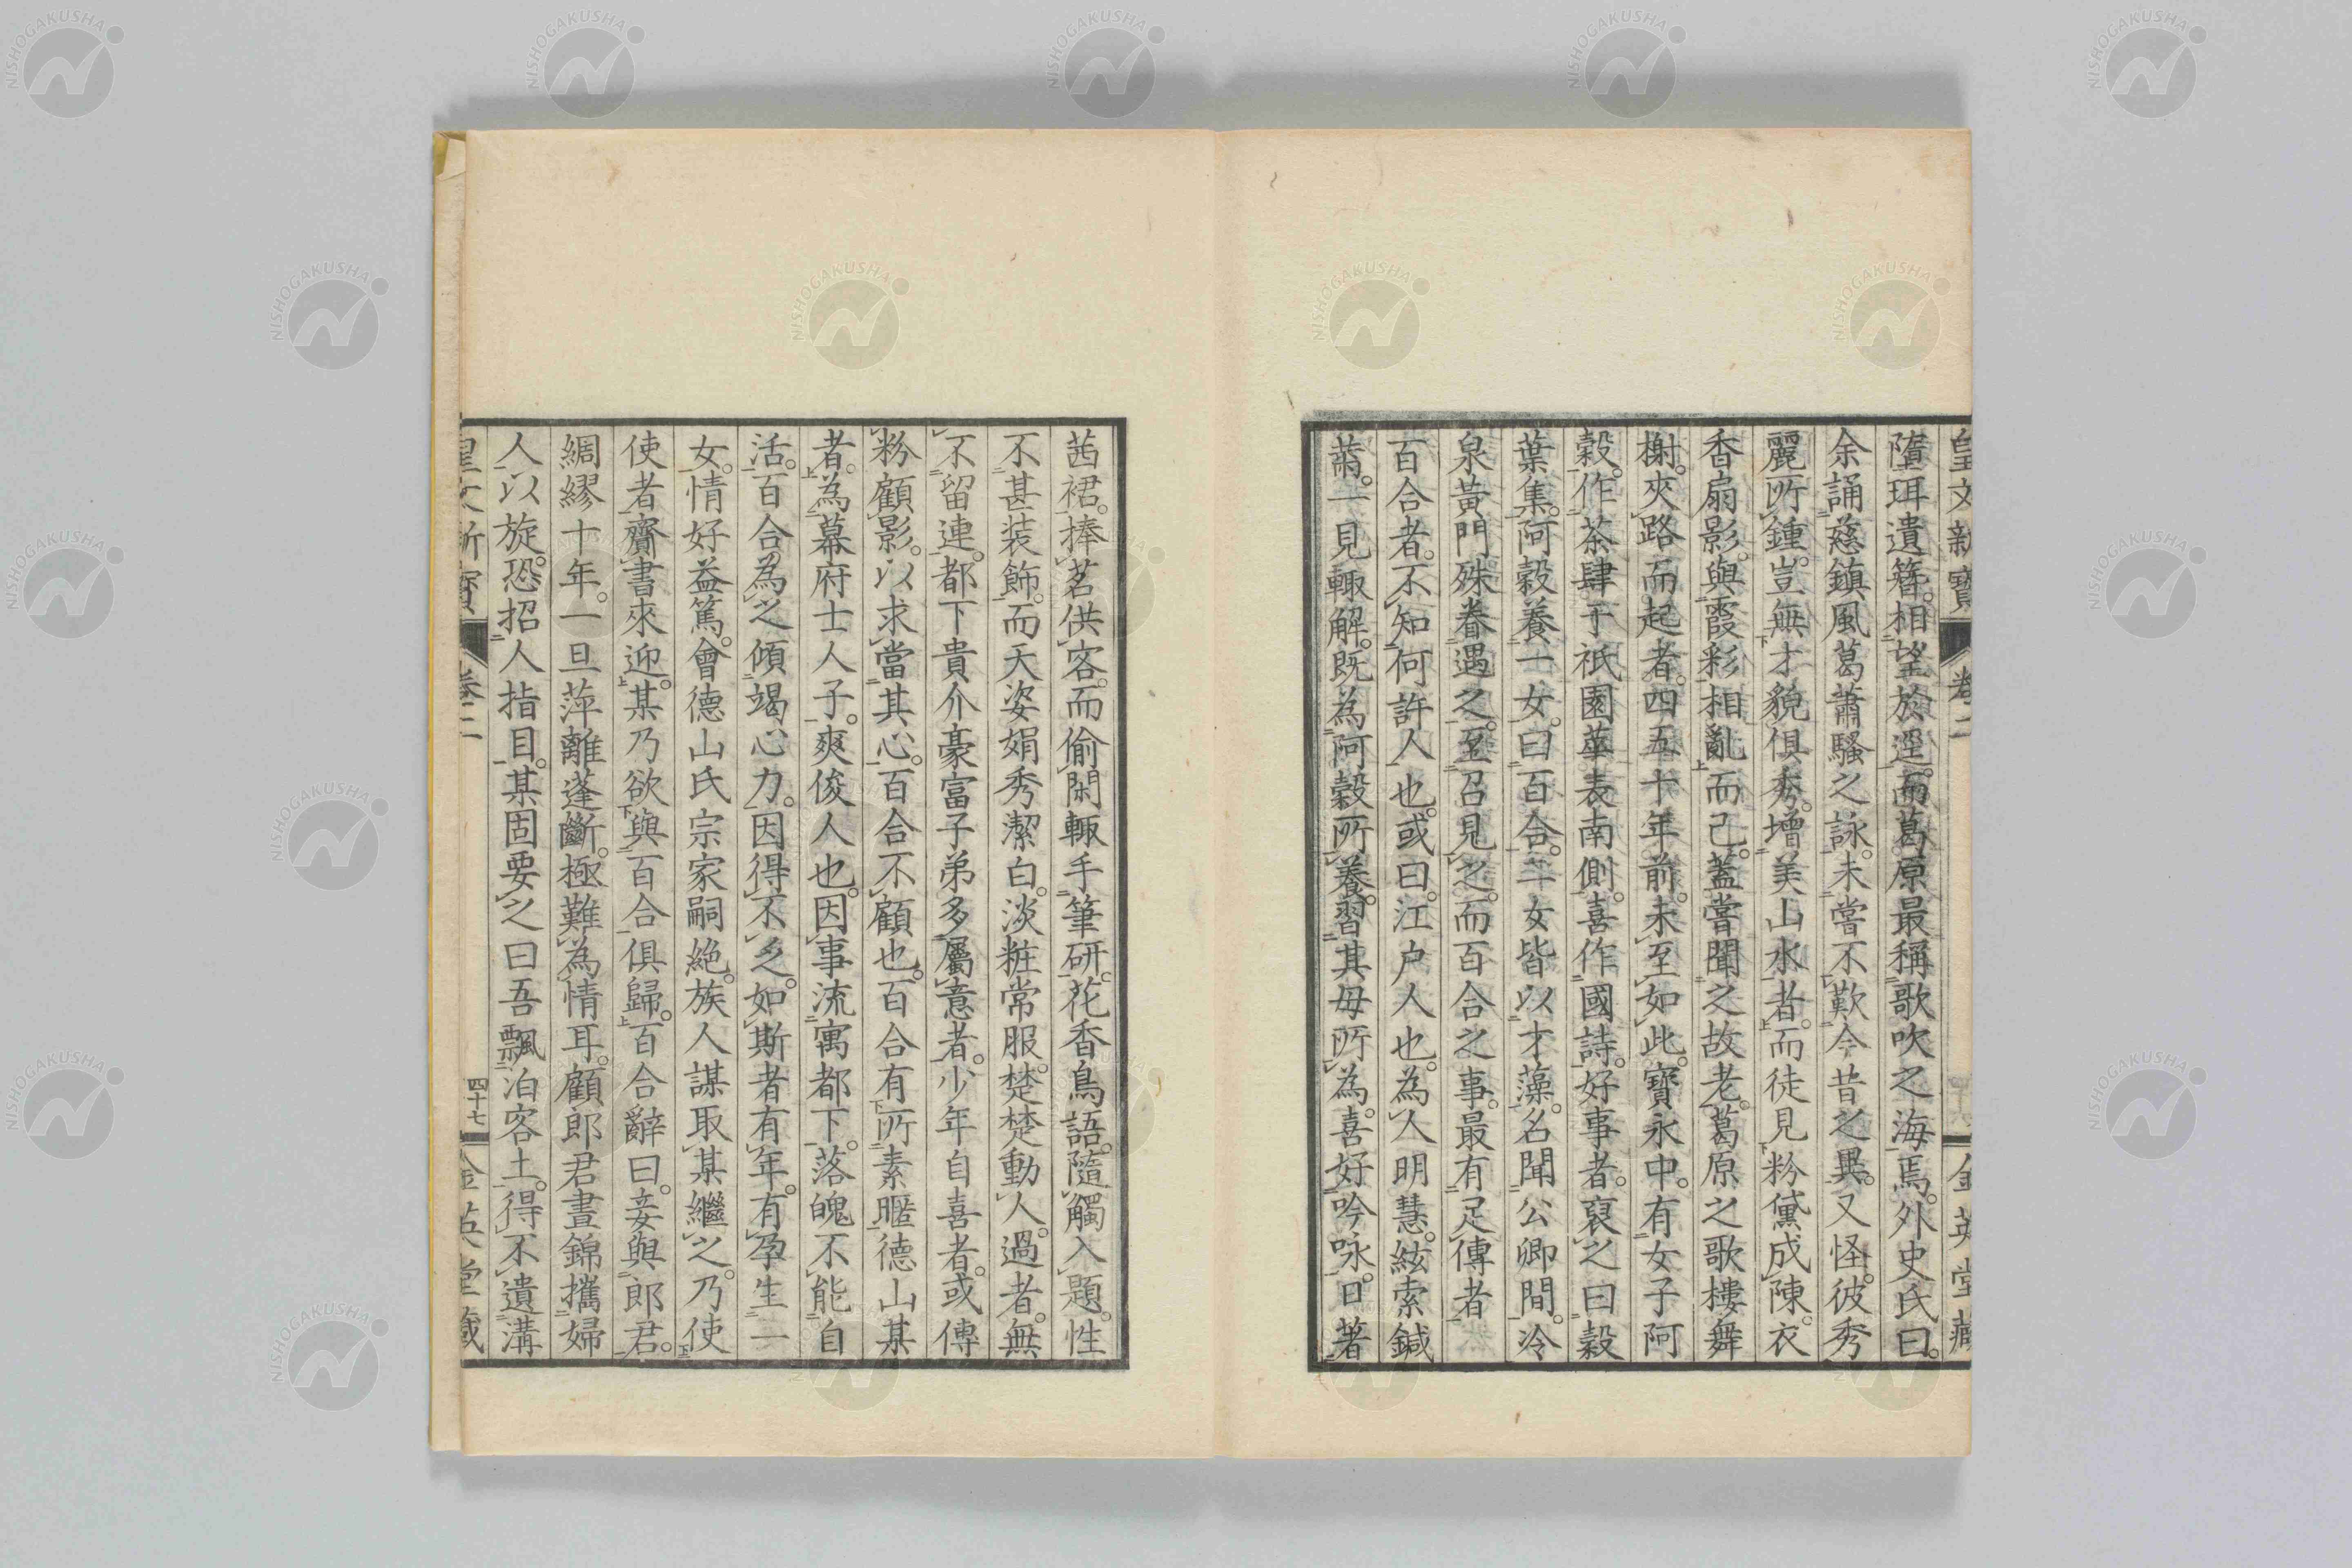 皇文新寶 卷二 金英堂藏
墮珥遺簪。相望於逕。而葛原最稱歌吹之海焉。外史氏曰。
余誦慈鎮風葛蕭騷之詠。未嘗不歎今昔之異。又怪。彼秀
麗所鍾。豈無才貌俱秀。增美山水者。而徒見粉黛成陳。衣
香扇影。與霞彩相亂而已。蓋嘗聞之故老。葛原之歌樓舞
榭。夾路而起者。四五十年前。未至如此。寶永中。有女子阿
穀。作茶肆于祇園華表南側。喜作國詩。好事者。裒之曰穀
葉集。阿穀養一女。曰百合。二女皆以才藻。名聞公卿間。冷
泉黃門殊眷遇之。至召見之。而百合之事。最有足傳者
百合者。不知何許人也。或曰。江户人也。為人明慧。絃索鍼
黹。一見輙解。既為阿穀所養。習其母所為。喜好吟咏。日著
茜裙。捧茗供客。而偷閑輙手筆研。花香鳥語。隨觸入題。性
不甚装飾。而天姿娟秀潔白。淡粧常服。楚楚動人。過者。無
不留連。都下貴介豪富子弟多屬意者。少年自喜者。或傅
粉顧影。以求當其心。百合不顧也。百合有所素暱德山某
者。為幕府士人子。爽俊人也。因事流寓都下。落魄不能自
活。百合為之傾竭心力。因得不乏。如斯者有年。有孕生一
女。情好益篤。會德山氏宗家嗣絶。族人謀取某繼之。乃使
使者齎書來迎。某乃欲與百合俱歸。百合辭曰。妾與郎君。
綢繆十年。一旦萍離蓬斷。極難為情耳。顧郎君晝錦攜婦
人以旋。恐招人指目。某固要之曰吾飄泊客土。得不遺溝
皇文新寶 卷二 四十七 金英堂藏
NISHOGAKUSHA